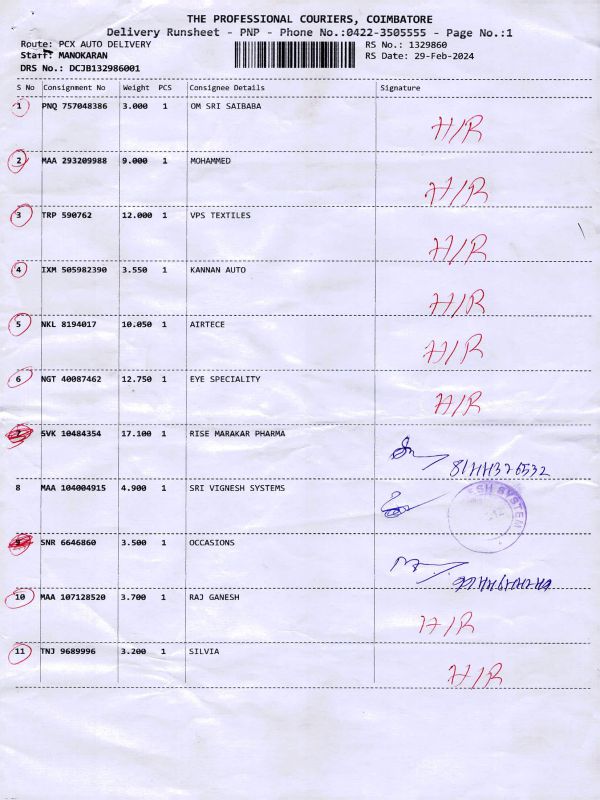 THE PROFESSIONAL COURIERS, COIMBATORE
Delivery Runsheet - PNP - Phone No.:0422-3505555 - Page No.:1
Route: PCX AUTO DELIVERY RS No.: 1329860
Staff: MANOKARAN RS Date: 29-Feb-2024
DRS No.: DCJB132986001
S No Consignment No Weight PCS Consignee Details Signature
1 PNQ 757048386 3.000 1 OM SRI SAIBABA
H/R
2 MAA 293209988 9.000 1 MOHAMMED
H/R
3 TRP 590762 12.000 1 VPS TEXTILES
H/R
4 IXM 505982390 3.550 1 KANNAN AUTO
H/R
5 NKL 8194017 10.050 1 AIRTECE
H/R
6 NGT 40087462 12.750 1 EYE SPECIALITY
H/R
7 SVK 10484354 17.100 1 RISE MARAKAR PHARMA
8 MAA 104004915 4.900 1 SRI VIGNESH SYSTEMS
ESH SYSTEM
9 SNR 6646860 3.500 1 OCCASIONS
10 MAA 107128520 3.700 1 RAJ GANESH
H/R
11 TNJ 9689996 3.200 1 SILVIA
H/R